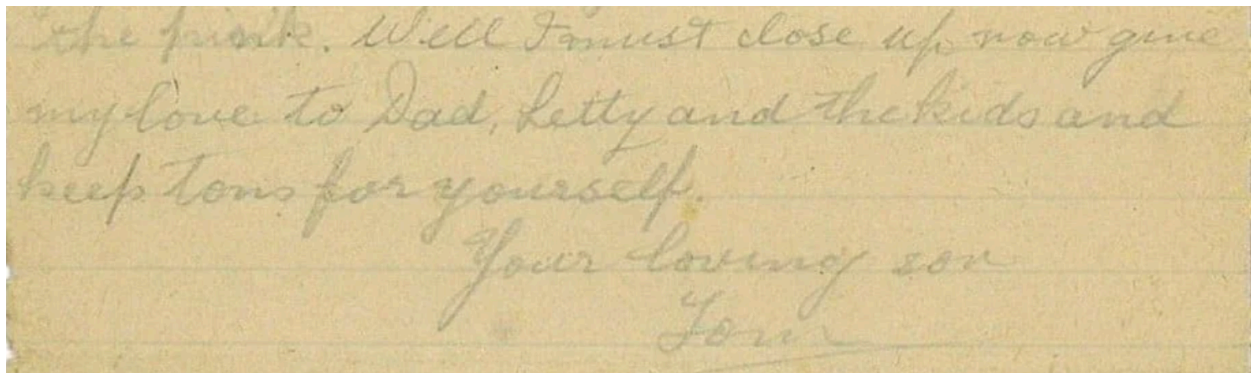 the pink. Well I must close up now give
my love to Dad, Letty and the kids and
keep tons for yourself.
Your loving son
Tom